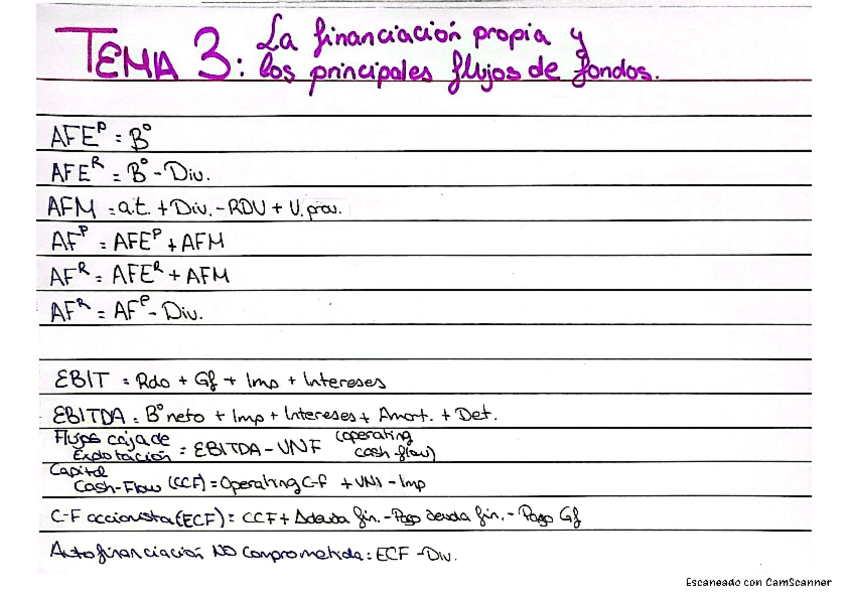 TEMA 3: La financiación propia y
los principales flujos de fondos.
AFEᴾ = Bº
AFEᴿ = Bº - Div.
AFM = a.t. + Div. - RDU + V. prov.
AFᴾ = AFEᴾ + AFM
AFᴿ = AFEᴿ + AFM
AFᴿ = AFᴾ - Div.
EBIT = Rdo + Gf + Imp + Intereses
EBITDA = Bº neto + Imp + Intereses + Amort. + Det.
Flujos caja de
Explotación = EBITDA - VNF (operating
cash-flow)
Capital
Cash-Flow (CCF) = Operating C-f + VNI - Imp
C-F accionista (ECF) = CCF + Δdeuda fin. - Pago deuda fin. - Pago Gf
Autofinanciación NO comprometida = ECF - Div.
Escaneado con CamScanner